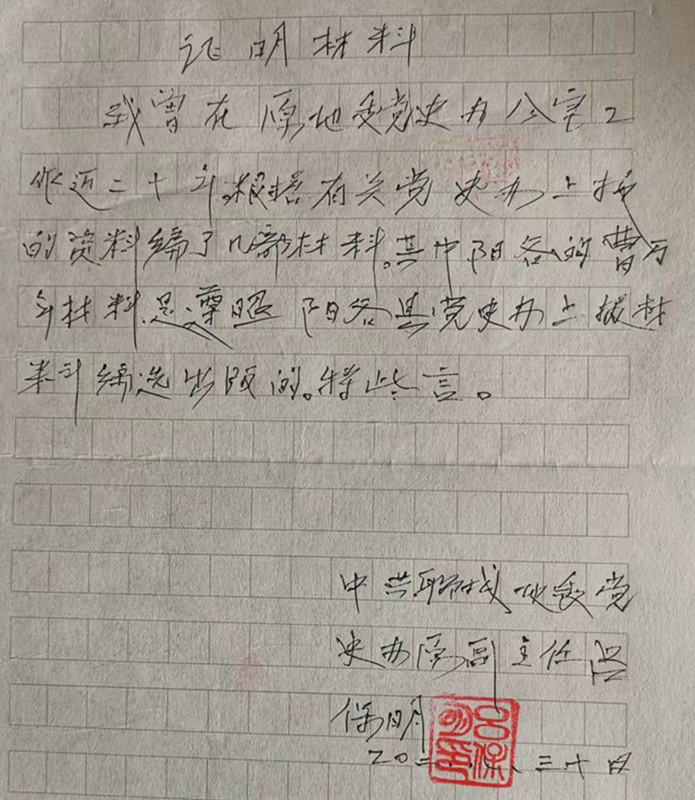 证明材料
我曾在原地委党史办公室工
作近二十年,根据有关党史办上报
的资料编了几部材料。其中阳谷的曹万
年材料是遵照阳谷县党史办上报材
料编选出版的。特此言。
中共聊城地委党
史办原副主任吕
保明
三十日